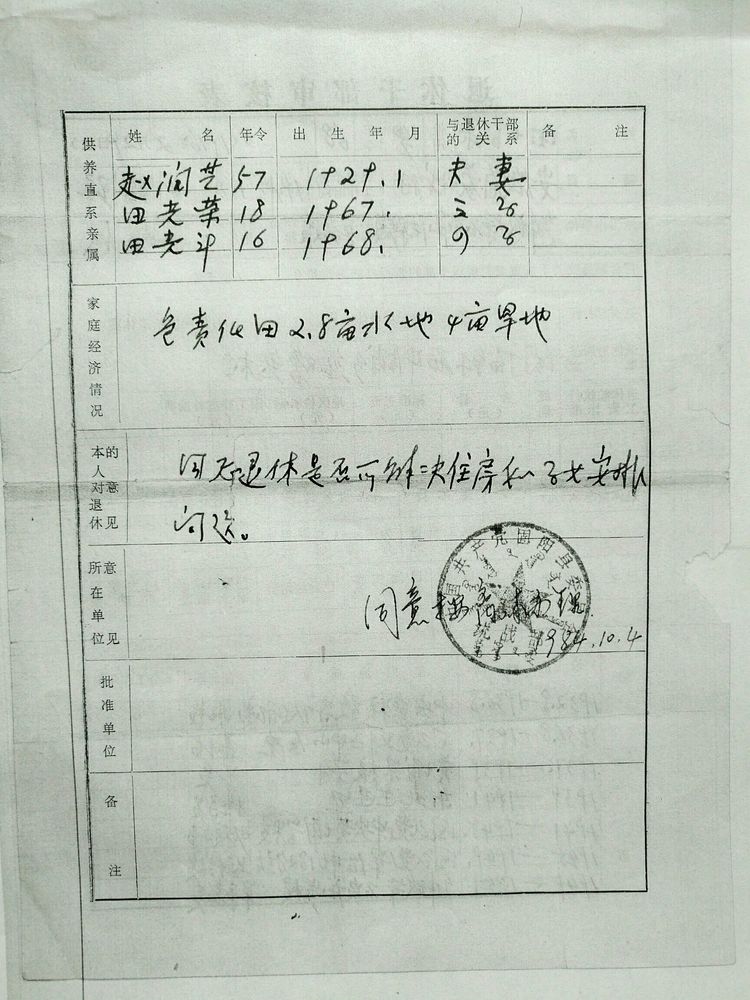 供养直系亲属
姓 名 年令 出生年月 与退休干部的关系 备 注
赵润芝 57 1929.1 夫妻
田老荣 18 1967. 三
田老斗 16 1968.
家庭经济情况
包责任田2.8亩水地4亩旱地
本人对退休的意见
同志退休是否可解决住房和子女安排
问题。
所在单位意见
同意
1984.10.4
中国共产党固阳县委
统战部
批准单位
备注